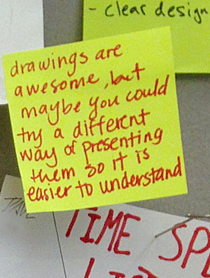 - clear design
drawings are
awesome, but
maybe you could
try a different
way of presenting
them so it is
easier to understand
TIME